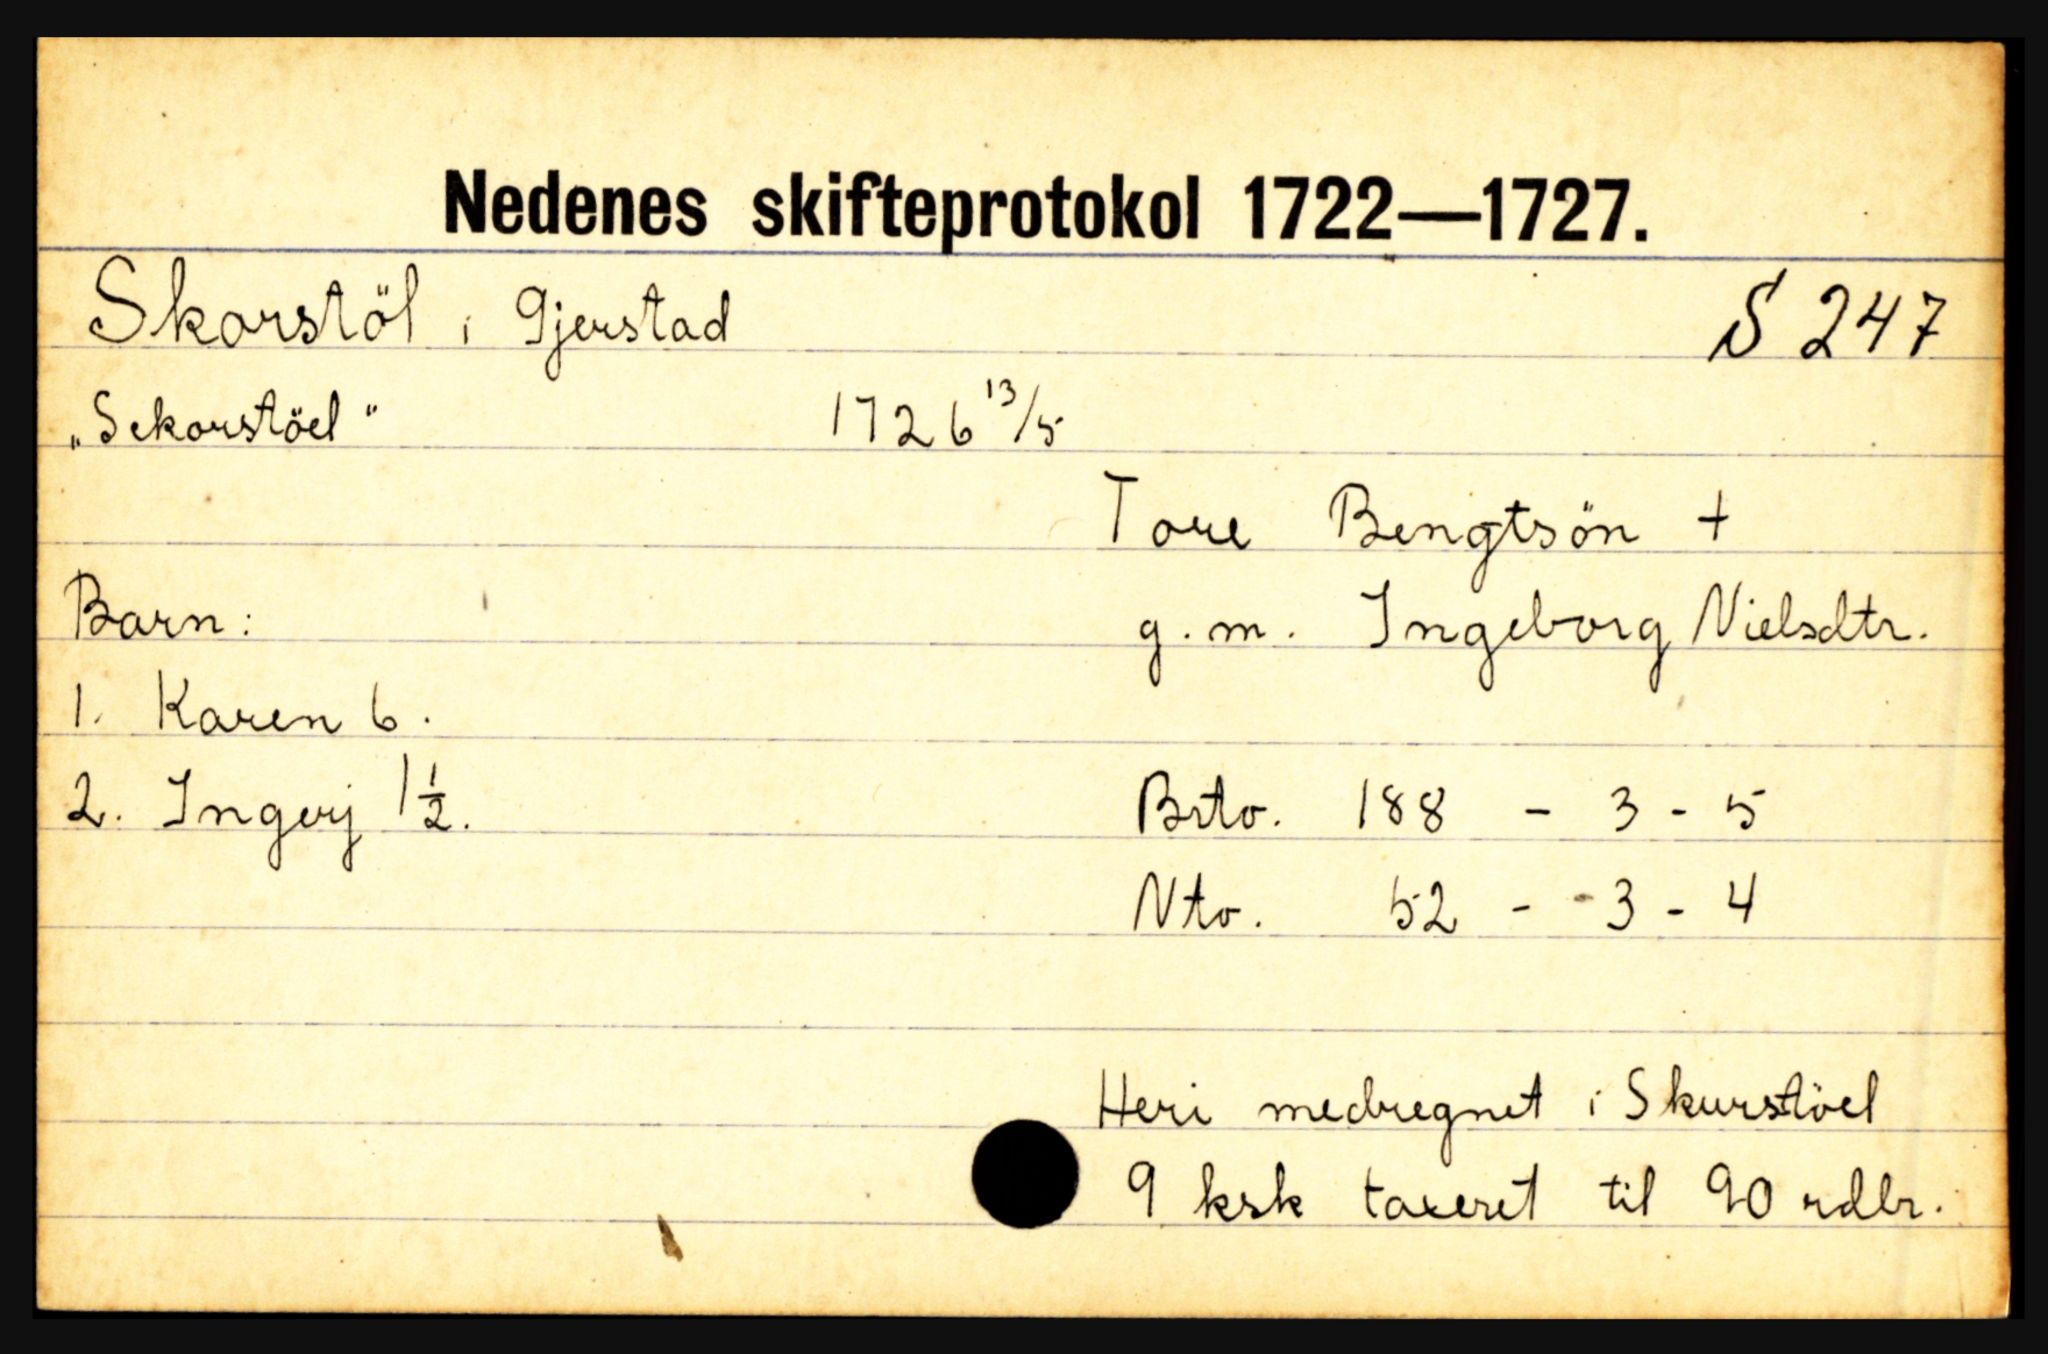 Nedenes skifteprotokol 1722—1727.
Skorstöl i Gjerstad S 247
„Sekorstöel" 1726 13/5
Tore Bengtsön +
Barn: g. m. Ingeborg Nielsdtr.
1. Karen 6.
2. Ingerj 1 1/2. Brto. 188 - 3 - 5
Nto. 52 - - 3 - 4
Heri medregnet i Skurstöel
9 ksk taxeret til 90 rdlr.